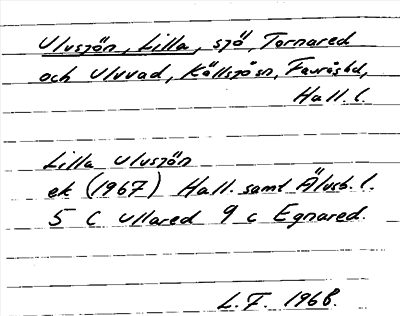 Ulvsjön, Lilla, sjö, Tornared
och Uluvad, Källsjösn, Fauråshd,
Hall. l.
Lilla Ulvsjön
ek (1967) Hall. samt Älvsb. l.
5 C Ullared 9 c Egnared.
L.F. 1968.